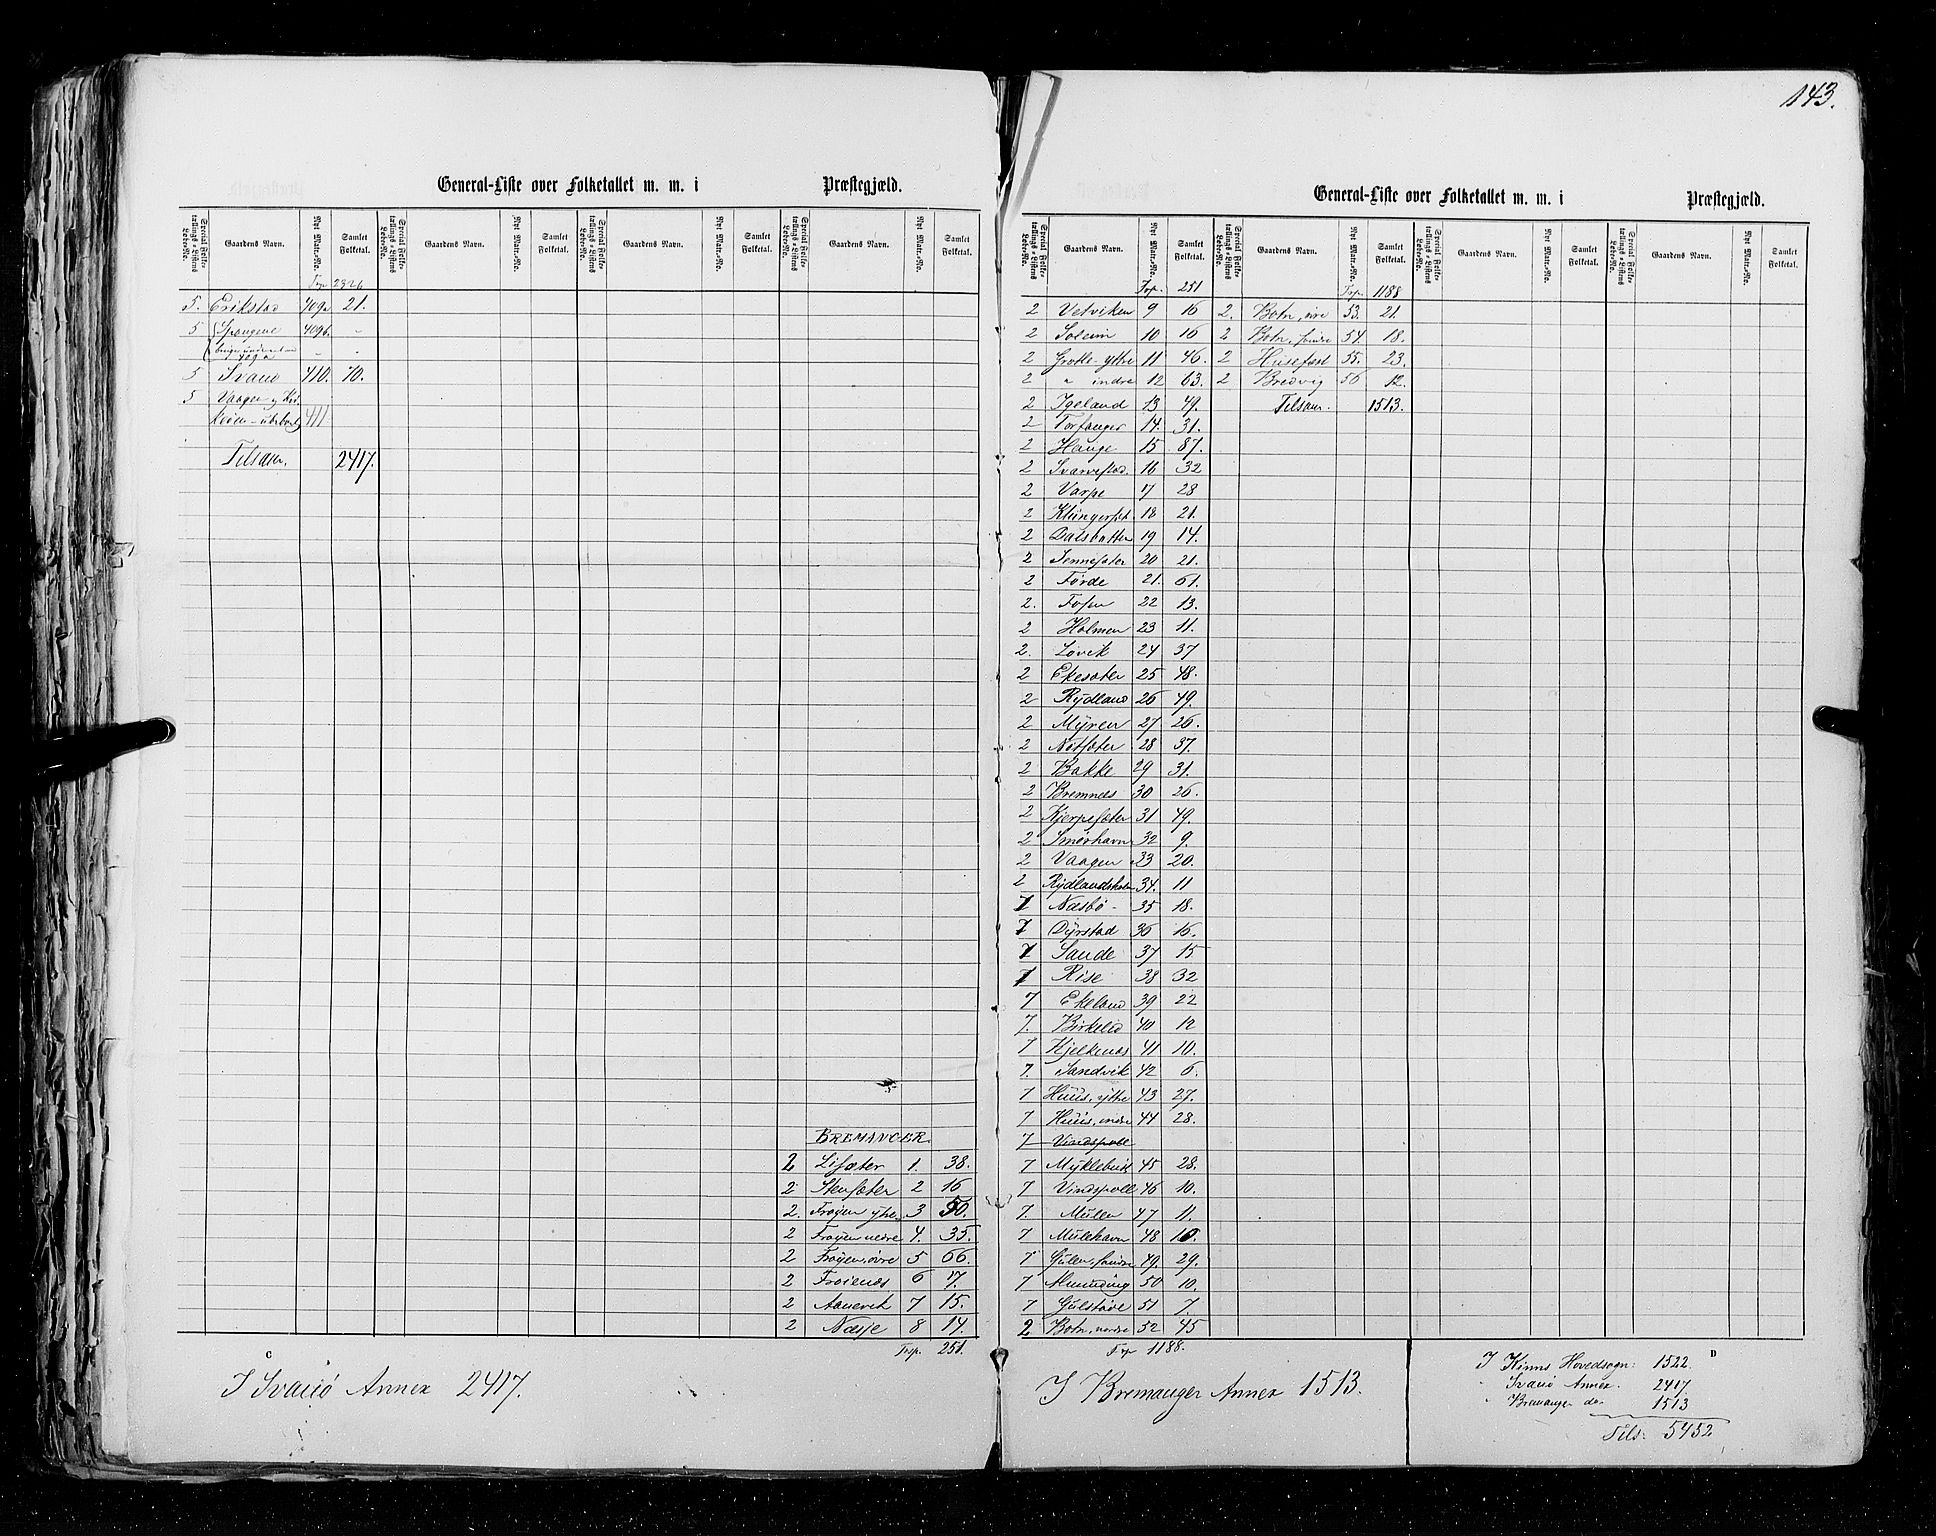 General-Liste over Folketallet m. m. i Præstegjæld.
Special Folketællings-Listens Løbe-No. Gaardens Navn. Nyt Matr.-No. Samlet Folketal. Special Folketællings-Listens Løbe-No. Gaardens Navn. Nyt Matr.-No. Samlet Folketal. Special Folketællings-Listens Løbe-No. Gaardens Navn. Nyt Matr.-No. Samlet Folketal. Special Folketællings-Listens Løbe-No. Gaardens Navn. Nyt Matr.-No. Samlet Folketal.
2326
5. Erikstad 409a 21.
5 409b -
5 Svanø 410. 70.
5 Vaagen
411.
Tilsam. 2417.
BREMANGER.
2 Lisæter 1. 38.
2 Stensæter 2 16
2. Frøyen ytre 3 50.
2 Frøyen nedre 4. 35.
2 Frøyen, øvre 5 66.
2 Frøienes 6 7.
2 Aanevik 7 15.
2 Nesje 8 14.
Trsp. 251.
C
I Svanø Annex 2417.
143.
General-Liste over Folketallet m. m. i Præstegjæld.
Special Folketællings-Listens Løbe-No. Gaardens Navn. Nyt Matr.-No. Samlet Folketal. Special Folketællings-Listens Løbe-No. Gaardens Navn. Nyt Matr.-No. Samlet Folketal. Special Folketællings-Listens Løbe-No. Gaardens Navn. Nyt Matr.-No. Samlet Folketal. Special Folketællings-Listens Løbe-No. Gaardens Navn. Nyt Matr.-No. Samlet Folketal.
Trsp. 251 Trsp. 1188
2 Vetviken 9 16 2. Botn, øvre 53. 21.
2 Soleim 10 16 2 Botn, søndre 54. 18.
2 Grotle ytre 11 46. 2 Husefæst 55. 23.
2 " indre 12 63. 2 Bredvig 56 12.
2 Igeland 13 49. Tilsam. 1513.
2 Torfanger 14. 31.
2 Hauge 15 87.
2 Svarvestad. 16 32
2 Varpe 17 28
2 Klungerset 18 21.
2 Dalsbotten 19 14.
2 Tennesæter 20 21.
2 Førde 21. 61.
2. Fosse 22 13.
2 Holmen 23 11.
2. Løvik 24 37
2 Ekesæter 25 48.
2 Rydland 26 49.
2 Myren 27 26.
2 Nøtsæter 28 37.
2 Bakke 29 31.
2 Bremnes 30 26.
2 Kjerpesæter 31 49.
2 Smørhavn 32 9.
2 Vaagen 33 20.
2 Rydlandsholm 34. 11
7 Næsbø - 35 18.
7 Dyrstad 36 16.
7 Sande 37 15
7 Rise 38 32
7 Ekeland 39 22
7. Birkelid 40 12
7 Kjelkenæs 41 10.
7. Sandvik 42 6.
7 Huus, ytre 43 27.
7 Huus, indre 44 28.
7 Vindspoll
7 Myklebust 45 28.
7 Vindspoll 46 10.
7. Mulen 47 11.
7 Mulehavn 48 10.
7 Gulen, søndre 49. 29.
7 50 10.
7 Gulstøde 51 7.
2 Botn, nordre 52 45
Trsp 1188.
D
I Bremanger Annex 1513.
I Kinns Hovedsogn: 1522.
" Svanø Annex. 2417.
" Bremanger do. 1513
Tils: 5452